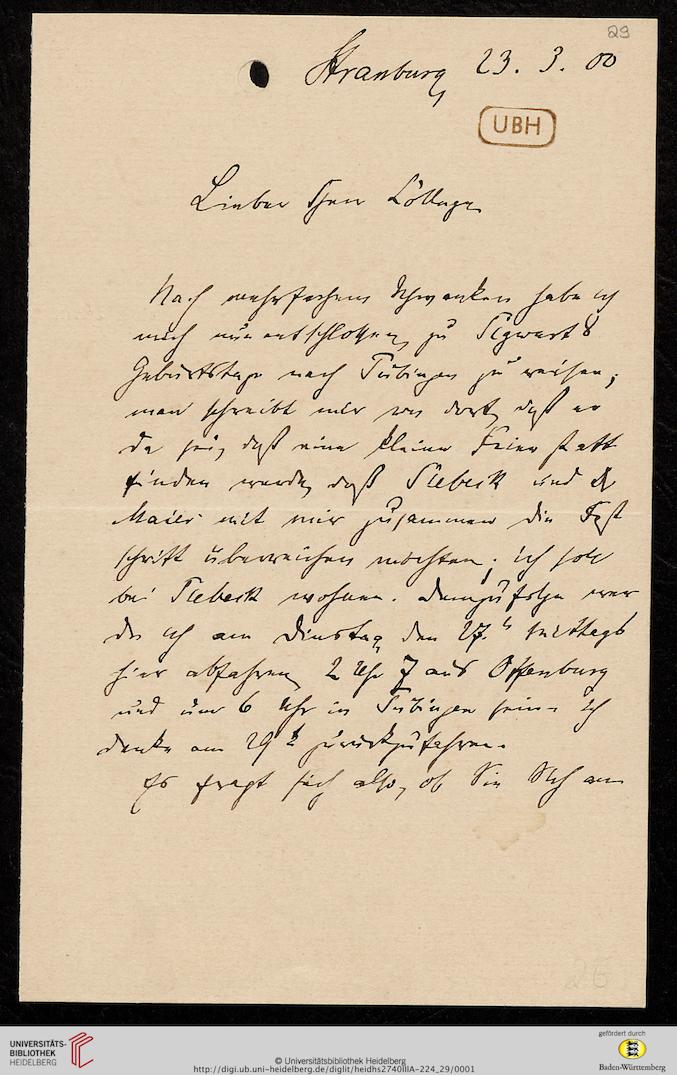 29
Strassburg 23. 3. 00
UBH
Lieber Herr College
Nach mehrfachem Schwanken habe ich
mich nun entschlossen, zu Sigwarts
Geburtstage nach Tübingen zu reisen;
man schreibt mir von dort, daß er
da sei, daß eine kleine Feier statt
finden werde, daß Siebeck und
Maier mit mir zusammen die Fest
schrift überreichen möchten; ich soll
bei Siebeck wohnen. Demzufolge wer
de ich am Dinstag, den 27. Mittags
hier abfahren, 2 Uhr 7 aus Offenburg
und um 6 Uhr in Tübingen sein. Ich
denke am 29 zurückzufahren.
Es fragt sich also, ob Sie Sich am
26
UNIVERSITÄTS-
BIBLIOTHEK
HEIDELBERG
© Universitätsbibliothek Heidelberg
http://digi.ub.uni-heidelberg.de/diglit/heidhs2740IIIA-224_29/0001
gefördert durch
Baden-Württemberg